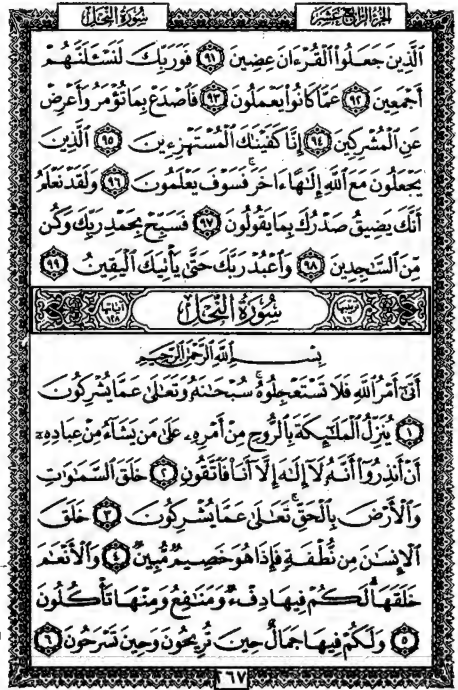 الجزء الرابع عشر
سورة النحل
ٱلَّذِينَ جَعَلُوا۟ ٱلْقُرْءَانَ عِضِينَ ٩١ فَوَرَبِّكَ لَنَسْـَٔلَنَّهُمْ
أَجْمَعِينَ ٩٢ عَمَّا كَانُوا۟ يَعْمَلُونَ ٩٣ فَٱصْدَعْ بِمَا تُؤْمَرُ وَأَعْرِضْ
عَنِ ٱلْمُشْرِكِينَ ٩٤ إِنَّا كَفَيْنَـٰكَ ٱلْمُسْتَهْزِءِينَ ٩٥ ٱلَّذِينَ
يَجْعَلُونَ مَعَ ٱللَّهِ إِلَـٰهًا ءَاخَرَ ۚ فَسَوْفَ يَعْلَمُونَ ٩٦ وَلَقَدْ نَعْلَمُ
أَنَّكَ يَضِيقُ صَدْرُكَ بِمَا يَقُولُونَ ٩٧ فَسَبِّحْ بِحَمْدِ رَبِّكَ وَكُن
مِّنَ ٱلسَّـٰجِدِينَ ٩٨ وَٱعْبُدْ رَبَّكَ حَتَّىٰ يَأْتِيَكَ ٱلْيَقِينُ ٩٩
ترتيبها ١٦ سُورَةُ النَّحْلِ آياتها ١٢٨
بِسْمِ ٱللَّهِ ٱلرَّحْمَـٰنِ ٱلرَّحِيمِ
أَتَىٰٓ أَمْرُ ٱللَّهِ فَلَا تَسْتَعْجِلُوهُ ۚ سُبْحَـٰنَهُۥ وَتَعَـٰلَىٰ عَمَّا يُشْرِكُونَ
١ يُنَزِّلُ ٱلْمَلَـٰٓئِكَةَ بِٱلرُّوحِ مِنْ أَمْرِهِۦ عَلَىٰ مَن يَشَآءُ مِنْ عِبَادِهِۦٓ
أَنْ أَنذِرُوٓا۟ أَنَّهُۥ لَآ إِلَـٰهَ إِلَّآ أَنَا۠ فَٱتَّقُونِ ٢ خَلَقَ ٱلسَّمَـٰوَٰتِ
وَٱلْأَرْضَ بِٱلْحَقِّ ۚ تَعَـٰلَىٰ عَمَّا يُشْرِكُونَ ٣ خَلَقَ
ٱلْإِنسَـٰنَ مِن نُّطْفَةٍ فَإِذَا هُوَ خَصِيمٌ مُّبِينٌ ٤ وَٱلْأَنْعَـٰمَ
خَلَقَهَا ۗ لَكُمْ فِيهَا دِفْءٌ وَمَنَـٰفِعُ وَمِنْهَا تَأْكُلُونَ
٥ وَلَكُمْ فِيهَا جَمَالٌ حِينَ تُرِيحُونَ وَحِينَ تَسْرَحُونَ ٦
٢٦٧